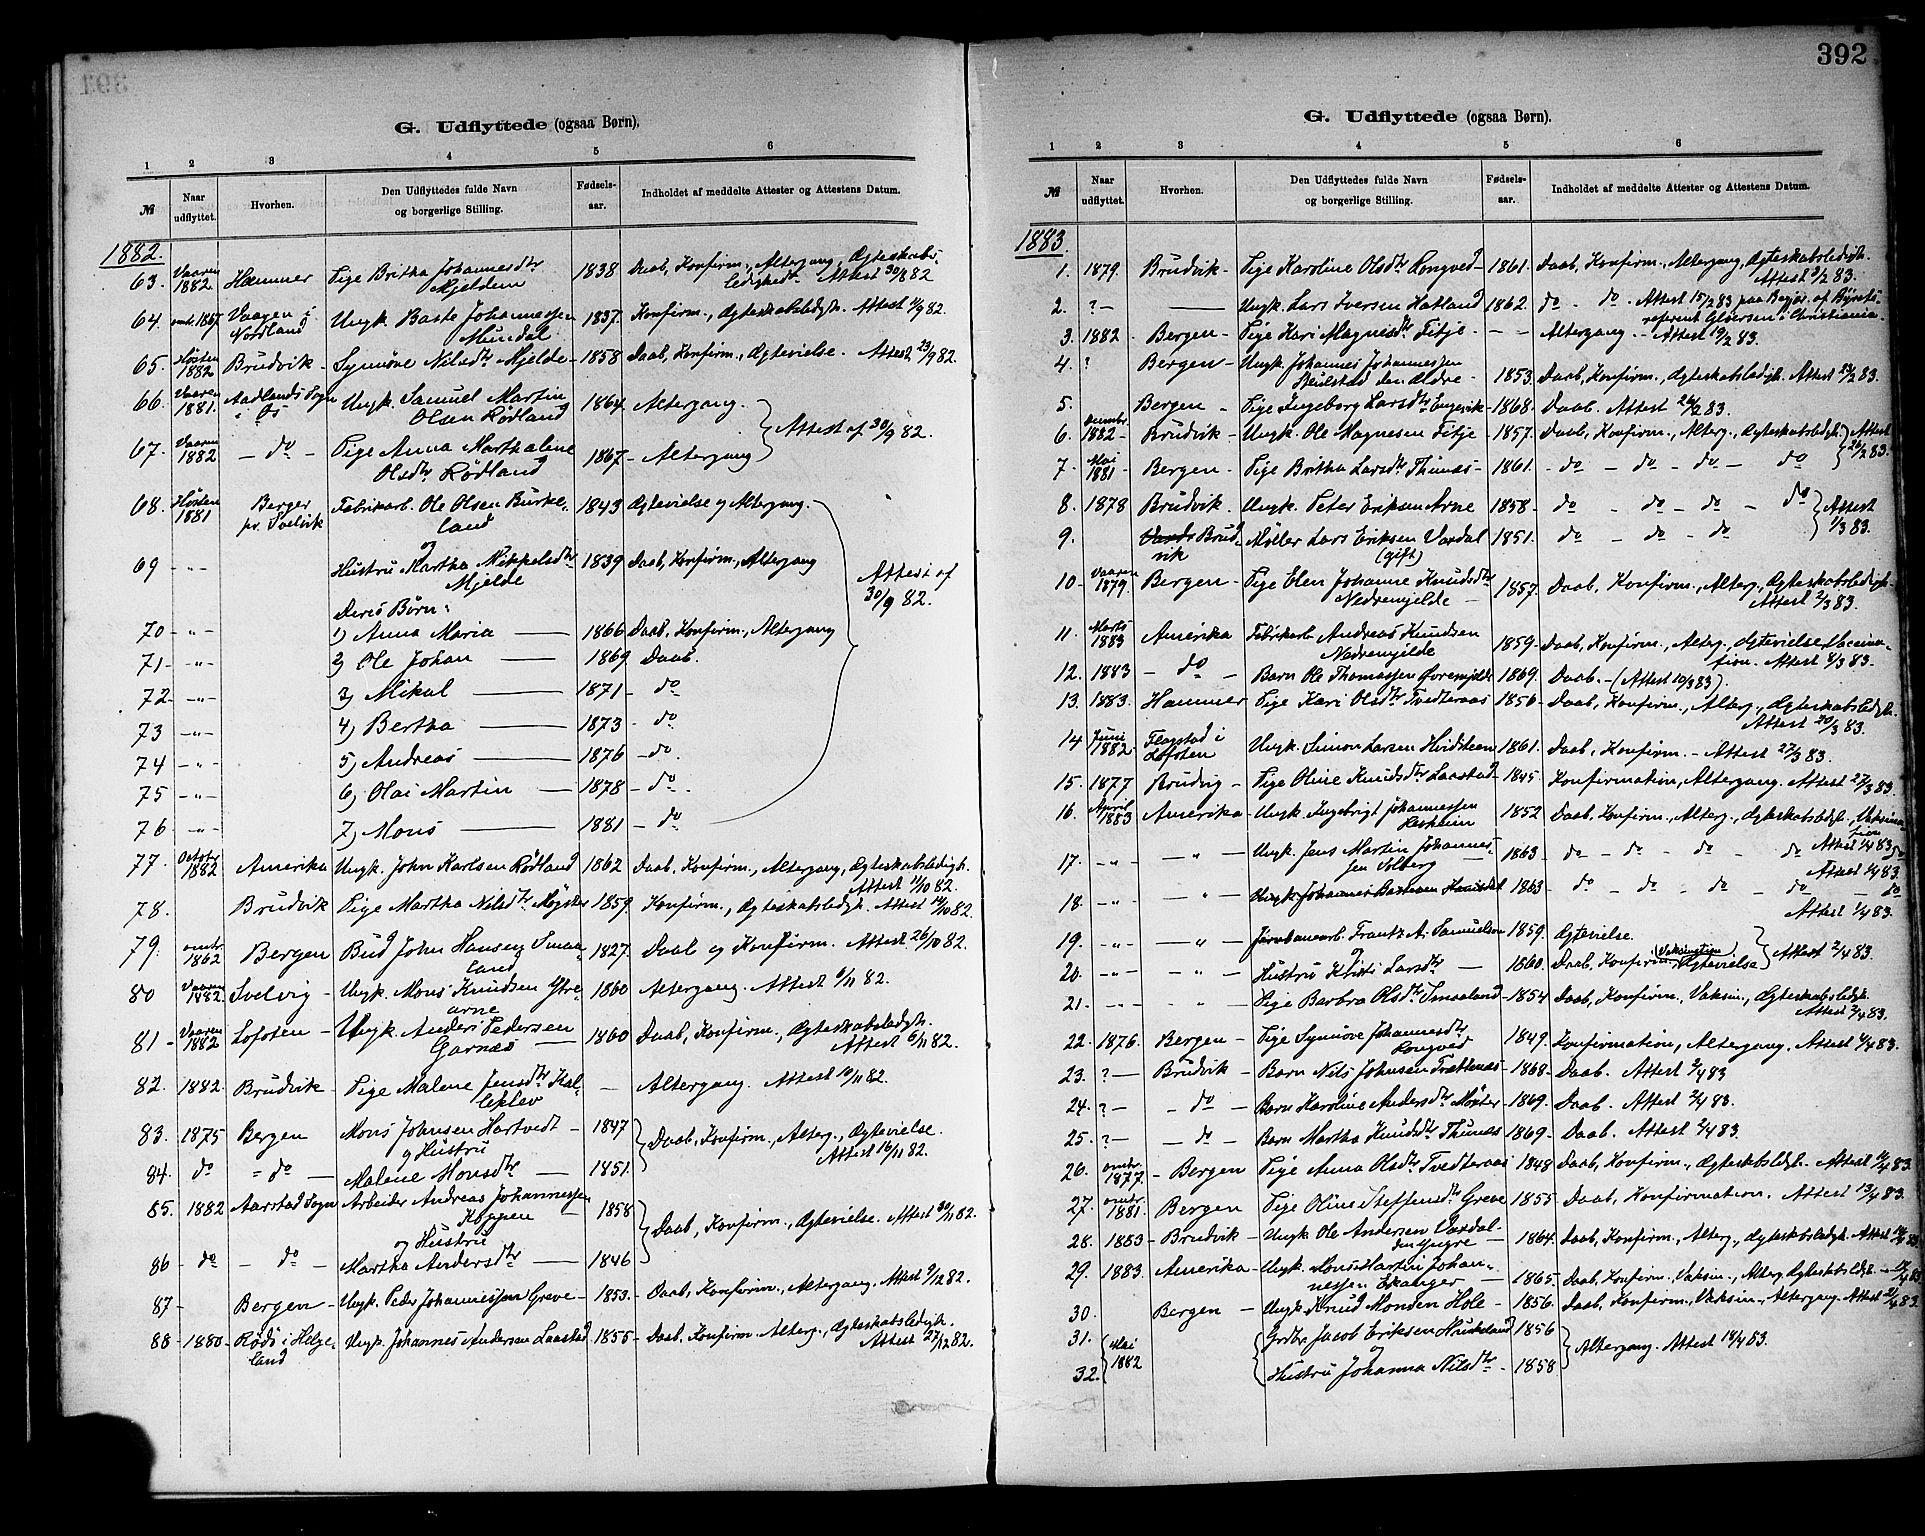 392
G. Udflyttede (ogsaa Børn).
1 2 3 4 5 6
№ Naar udflyttet. Hvorhen. Den Udflyttedes fulde Navn og borgerlige Stilling. Fødsels-aar. Indholdet af meddelte Attester og Attestens Datum.
1882.
63. Vaaren 1882. Hammer Pige Britha Johannesdtr Mjeldem 1838 Daab, Konfirm., Altergang, Ægteskabs-
ledighed. Attest 30/8 82
64. omtr. 1867 Vaagen i Nordland Ungk. Baste Johannessen Mundal 1837. Konfirm., Ægteskabsledigh. Attest 82.
65. Høsten 1882 Brudvik – Synnøve Nilsdtr Mjelde – 1858 Daab, Konfirm., Ægtevielse. Attest 23/9 82.
66. Vaaren 1881. Aadlands Sogn i Os Ungk. Samuel Martin Olsen Rødland 1864. Altergang.
67. Vaaren 1882 – do – Pige Anna Marthalene Olsdtr Rødland 1867 – Altergang } Attest af 30/9 82.
68. Høsten 1881 Berger pr. Svelvik Fabrikarb. Ole Olsen Burke-
land 1843 Ægtevielse og Altergang.
og
69 – " – Hustru Martha Mikkelsdtr Mjelde 1839 Daab, Konfirm., Altergang
Attest af 30/9 82.
Deres Børn:
70 – " – 1) Anna Maria — 1866 Daab, Konfirm., Altergang
71 – " – 2) Ole Johan — 1869 Daab.
72 – " – 3) Mikal — 1871 – do
73 – " – 4) Bertha — 1873 – do
74 – " – 5) Andreas — 1876 – do
75 – " – 6) Olai Martin — 1878 – do –
76 – " – 7) Mons — 1881 – do
77. Octobr 1882 Amerika Ungk. John Karlsen Rødland 1862 Daab, Konfirm., Altergang, Ægteskabsledigh.
Attest 11/10 82.
78. Brudvik Pige Martha Nilsdtr 1859. Konfirm., Ægteskabsledigh. Attest 14/10 82.
79. omtr. 1862 Bergen Bud John Hansen Smaa-
land 1827. Daab og Konfirm. Attest 26/10 82.
80 Vaaren 1882. Svelvig – Ungk. Mons Knudsen Ytre-
arne 1860 Altergang. Attest 6/11 82.
81 – Vaaren 1882 Lofoten – Ungk. Anders Pedersen Garnæs — 1860 Daab, Konfirm., Ægteskabsledigh.
Attest 6/11 82.
82. 1882. Brudvik – Pige Malene Jensdtr Kal-
leklev – Altergang. Attest 10/11 82.
83. 1875 Bergen Mons Johnsen Hartvedt – 1847 Daab, Konfirm., Alterg., Ægtevielse.
og Hustru
84. do – do – Malene Monsdtr — 1851. Attest 16/11 82.
85. 1882 Aarstad Sogn Arbeider Andreas Johannessen Koppen – 1858
og Hustru Daab, Konfirm., Ægtevielse. Attest 30/11 82.
86 – do – do – Martha Andersdtr — 1846
87 – Bergen – Ungk. Peder Johannessen Greve – 1853. Daab, Konfirm., Altergang. Attest 9/12 82.
88 – 1880 – Rødø i Helge-
land Ungk. Johannes Andersen Laastad 1855 – Daab, Konfirm. Alterg., Ægteskabsledigh.
Attest 27/12 82.
G. Udflyttede (ogsaa Børn).
1 2 3 4 5 6
№ Naar udflyttet. Hvorhen. Den Udflyttedes fulde Navn og borgerlige Stilling. Fødsels-aar. Indholdet af meddelte Attester og Attestens Datum.
1883.
1. 1879. Brudvik – Pige Karoline Olsdtr Rongved – 1861. Daab, Konfirm., Altergang, Ægteskabsledigh.
Attest 83.
2. ? – — Ungk. Lars Iversen Hatland 1862. do – do. Attest 15/2 83 paa Begjær. af Byrets-
referent i Christiania.
3. 1882. Bergen – Pige Kari Magnesdtr Titje – – – Altergang – Attest 19/2 83.
4. ? Bergen – Ungk. Johannes Johannessen den Ældre – 1853. Daab, Konfirm., Ægteskabsledigh. Attest 83.
5. Bergen – Pige Ingeborg Larsdtr – 1868. Daab. Attest 26/2 83.
6. Decembr 1882 – Brudvik – Ungk. Ole Magnesen Titje – 1857. Daab, Konfirm., Alterg., Ægteskabsledigh. } Attest 26/2 83.
7. Mai 1881 – Bergen – Pige Britha Larsdtr Thunæs – 1861. – do – do – do – do
8. 1878 Brudvik – Ungk. Peter Eriksen Arne 1858 – do – do – do – do } Attest 1/3 83.
9. Brud-
vik Møller Lars Eriksen Vardal (gift) 1851. do – do – do
10. Vaaren 1879. Bergen – Pige Elen Johanne Knudsdtr Nedremjelde — 1857. Daab, Konfirm., Alterg., Ægteskabsledigh.
Attest 2/3 83.
11. Marts 1883 Amerika – Fabrikarb. Andreas Knudsen Nedremjelde 1859. Daab, Konfirm., Alterg., Ægtevielse, Vaccina-
tion. Attest 83.
12. 1883 – do – Barn Ole Thomassen Øvremjelde 1869. Daab. – (Attest 10/3 83).
13. 1883. Hammer Pige Kari Olsdtr Tvedteraas 1856 – Daab, Konfirm., Alterg., Ægteskabsledigh.
Attest 20/3 83.
14 Juni 1882. Flagstad i Lofoten Ungk. Simon Larsen Hvidsteen 1861. Daab, Konfirm. – Attest 27/3 83.
15. 1877 Brudvig – Pige Oline Knudsdtr Laastad – 1845. Konfirmation, Altergang. Attest 27/3 83.
16. April 1883 Amerika – Ungk. Ingebrigt Johannessen 1852 Daab, Konfirm., Alterg., Ægteskabsledigh., Vaksina-
tion Attest 1/4 83.
17. – " – – " – Ungk. Jens Martin Johannes-
sen Solberg — 1863 – do – do – do – do do
Attest 1/4 83.
18. – " – – " – Ungk. Johannes 1863 – do – do – do – do – do
Attest 1/4 83.
19. – " – – " – Jernbanearb. Frantz A. Samuelsen 1859. Ægtevielse.
og
20. – " – – " – Hustru Kristi Larsdtr — 1860. Daab, Konfirm. (Vaksination) Ægtevielse } Attest 2/4 83.
21. – " – – " – Pige Barbra Olsdtr Smaaland – 1854 Daab, Konfirm., Vaksin., Ægteskabsledigh.
Attest 2/4 83.
22. 1876. Bergen – Pige Synnøve Johannesdtr Rongved 1849. Konfirmation, Altergang. Attest 83.
23. ? – Brudvik – Barn Nils Johnsen Trættenæs – 1868. Daab. Attest 2/4 83
24. ? – – do – Barn Karoline Andersdtr 1869. Daab. Attest 2/4 83.
25. ? – – do – Barn Martha Knudsdtr Thunæs 1869 – Daab. Attest 2/4 83.
26. omtr. 1877. – Bergen – Pige Anna Olsdtr Tvedteraas 1848 Daab, Konfirm., Ægteskabsledigh. Attest 83.
27. omtr. 1881. Bergen Pige Oline Steffensdtr Greve 1855 Daab, Konfirmation. Attest 13/4 83.
28. 1883 – Brudvik – Ungk. Ole Andersen Vardal – den Yngre – 1864. Daab, Konfirm., Alterg., Ægteskabsledigh. Attest 83.
29. 1883. Amerika – Ungk. Mons Martin Johan-
nessen Ekanger – 1865 Daab, Konfirm., Vaksin., Alterg., Ægteskabsledigh. 83
30. Bergen – Ungk. Knud Monsen Hole – 1856. Daab, Konfirm., Vaksin., Altergang. Attest 83.
31. Mai 1882 Grdbr Jacob Eriksen 1856
og Altergang. Attest 18/4 83.
32. Hustru Johanna Nilsdtr – 1858